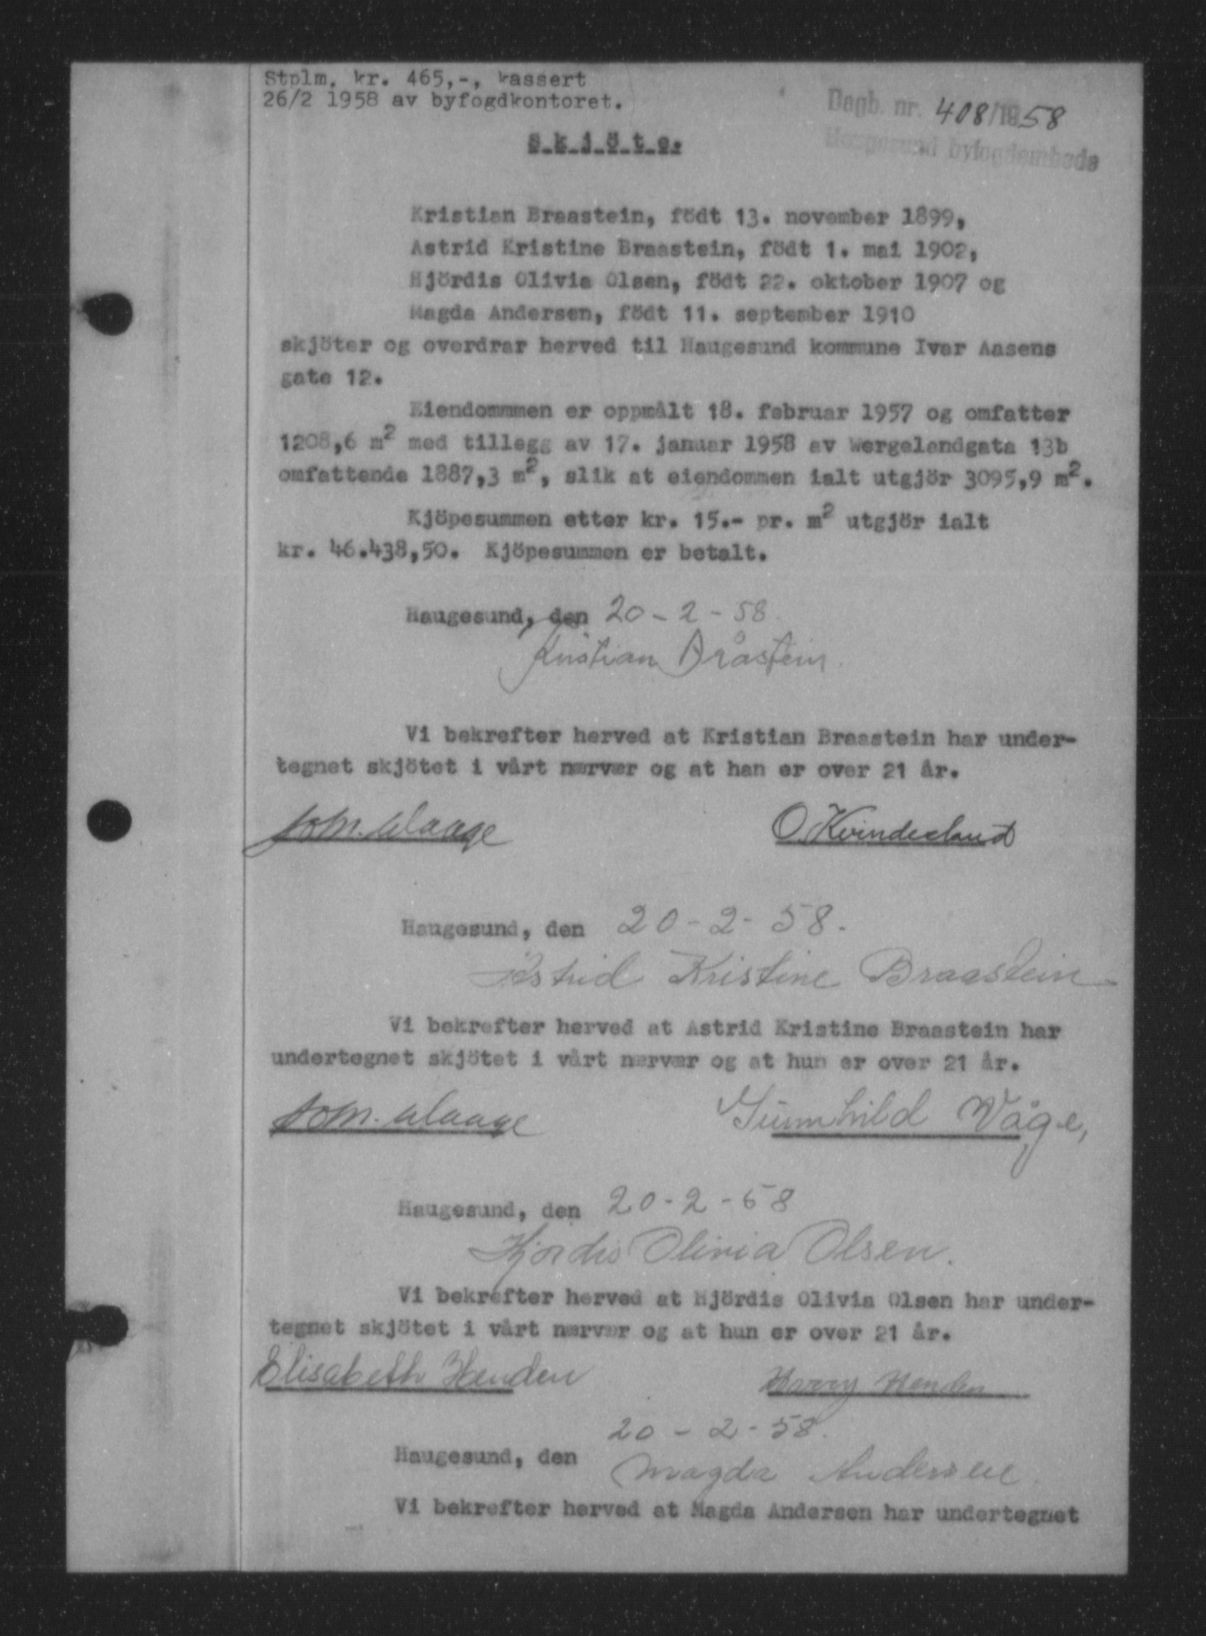 Stplm. kr. 465,-, kassert
26/2 1958 av byfogdkontoret.
Dagb. nr. 408/1958
Haugesund byfogdembede
S k j ö t e.
Kristian Braastein, födt 13. november 1899,
Astrid Kristine Braastein, födt 1. mai 1902,
Hjördis Olivia Olsen, födt 22. oktober 1907 og
Magda Andersen, födt 11. september 1910
skjöter og overdrar herved til Haugesund kommune Ivar Aasens
gate 12.
Eiendommmen er oppmålt 18. februar 1957 og omfatter
1208,6 m² med tillegg av 17. januar 1958 av Wergelandgata 13b
omfattende 1887,3 m², slik at eiendommen ialt utgjör 3095,9 m².
Kjöpesummen etter kr. 15.- pr. m² utgjör ialt
kr. 46.438,50. Kjöpesummen er betalt.
Haugesund, den 20-2-58
Kristian Bråstein.
Vi bekrefter herved at Kristian Braastein har under-
tegnet skjötet i vårt nærvær og at han er over 21 år.
Waage O. Kvindesland
Haugesund, den 20-2-58.
Astrid Kristine Braastein
Vi bekrefter herved at Astrid Kristine Braastein har
undertegnet skjötet i vårt nærvær og at hun er over 21 år.
Waage Gunnhild Våge,
Haugesund, den 20-2-58
Hjördis Olivia Olsen.
Vi bekrefter herved at Hjördis Olivia Olsen har under-
tegnet skjötet i vårt nærvær og at hun er over 21 år.
Elisabeth Henden Harry Henden
20-2-58.
Haugesund, den Magda Andersen.
Vi bekrefter herved at Magda Andersen har undertegnet